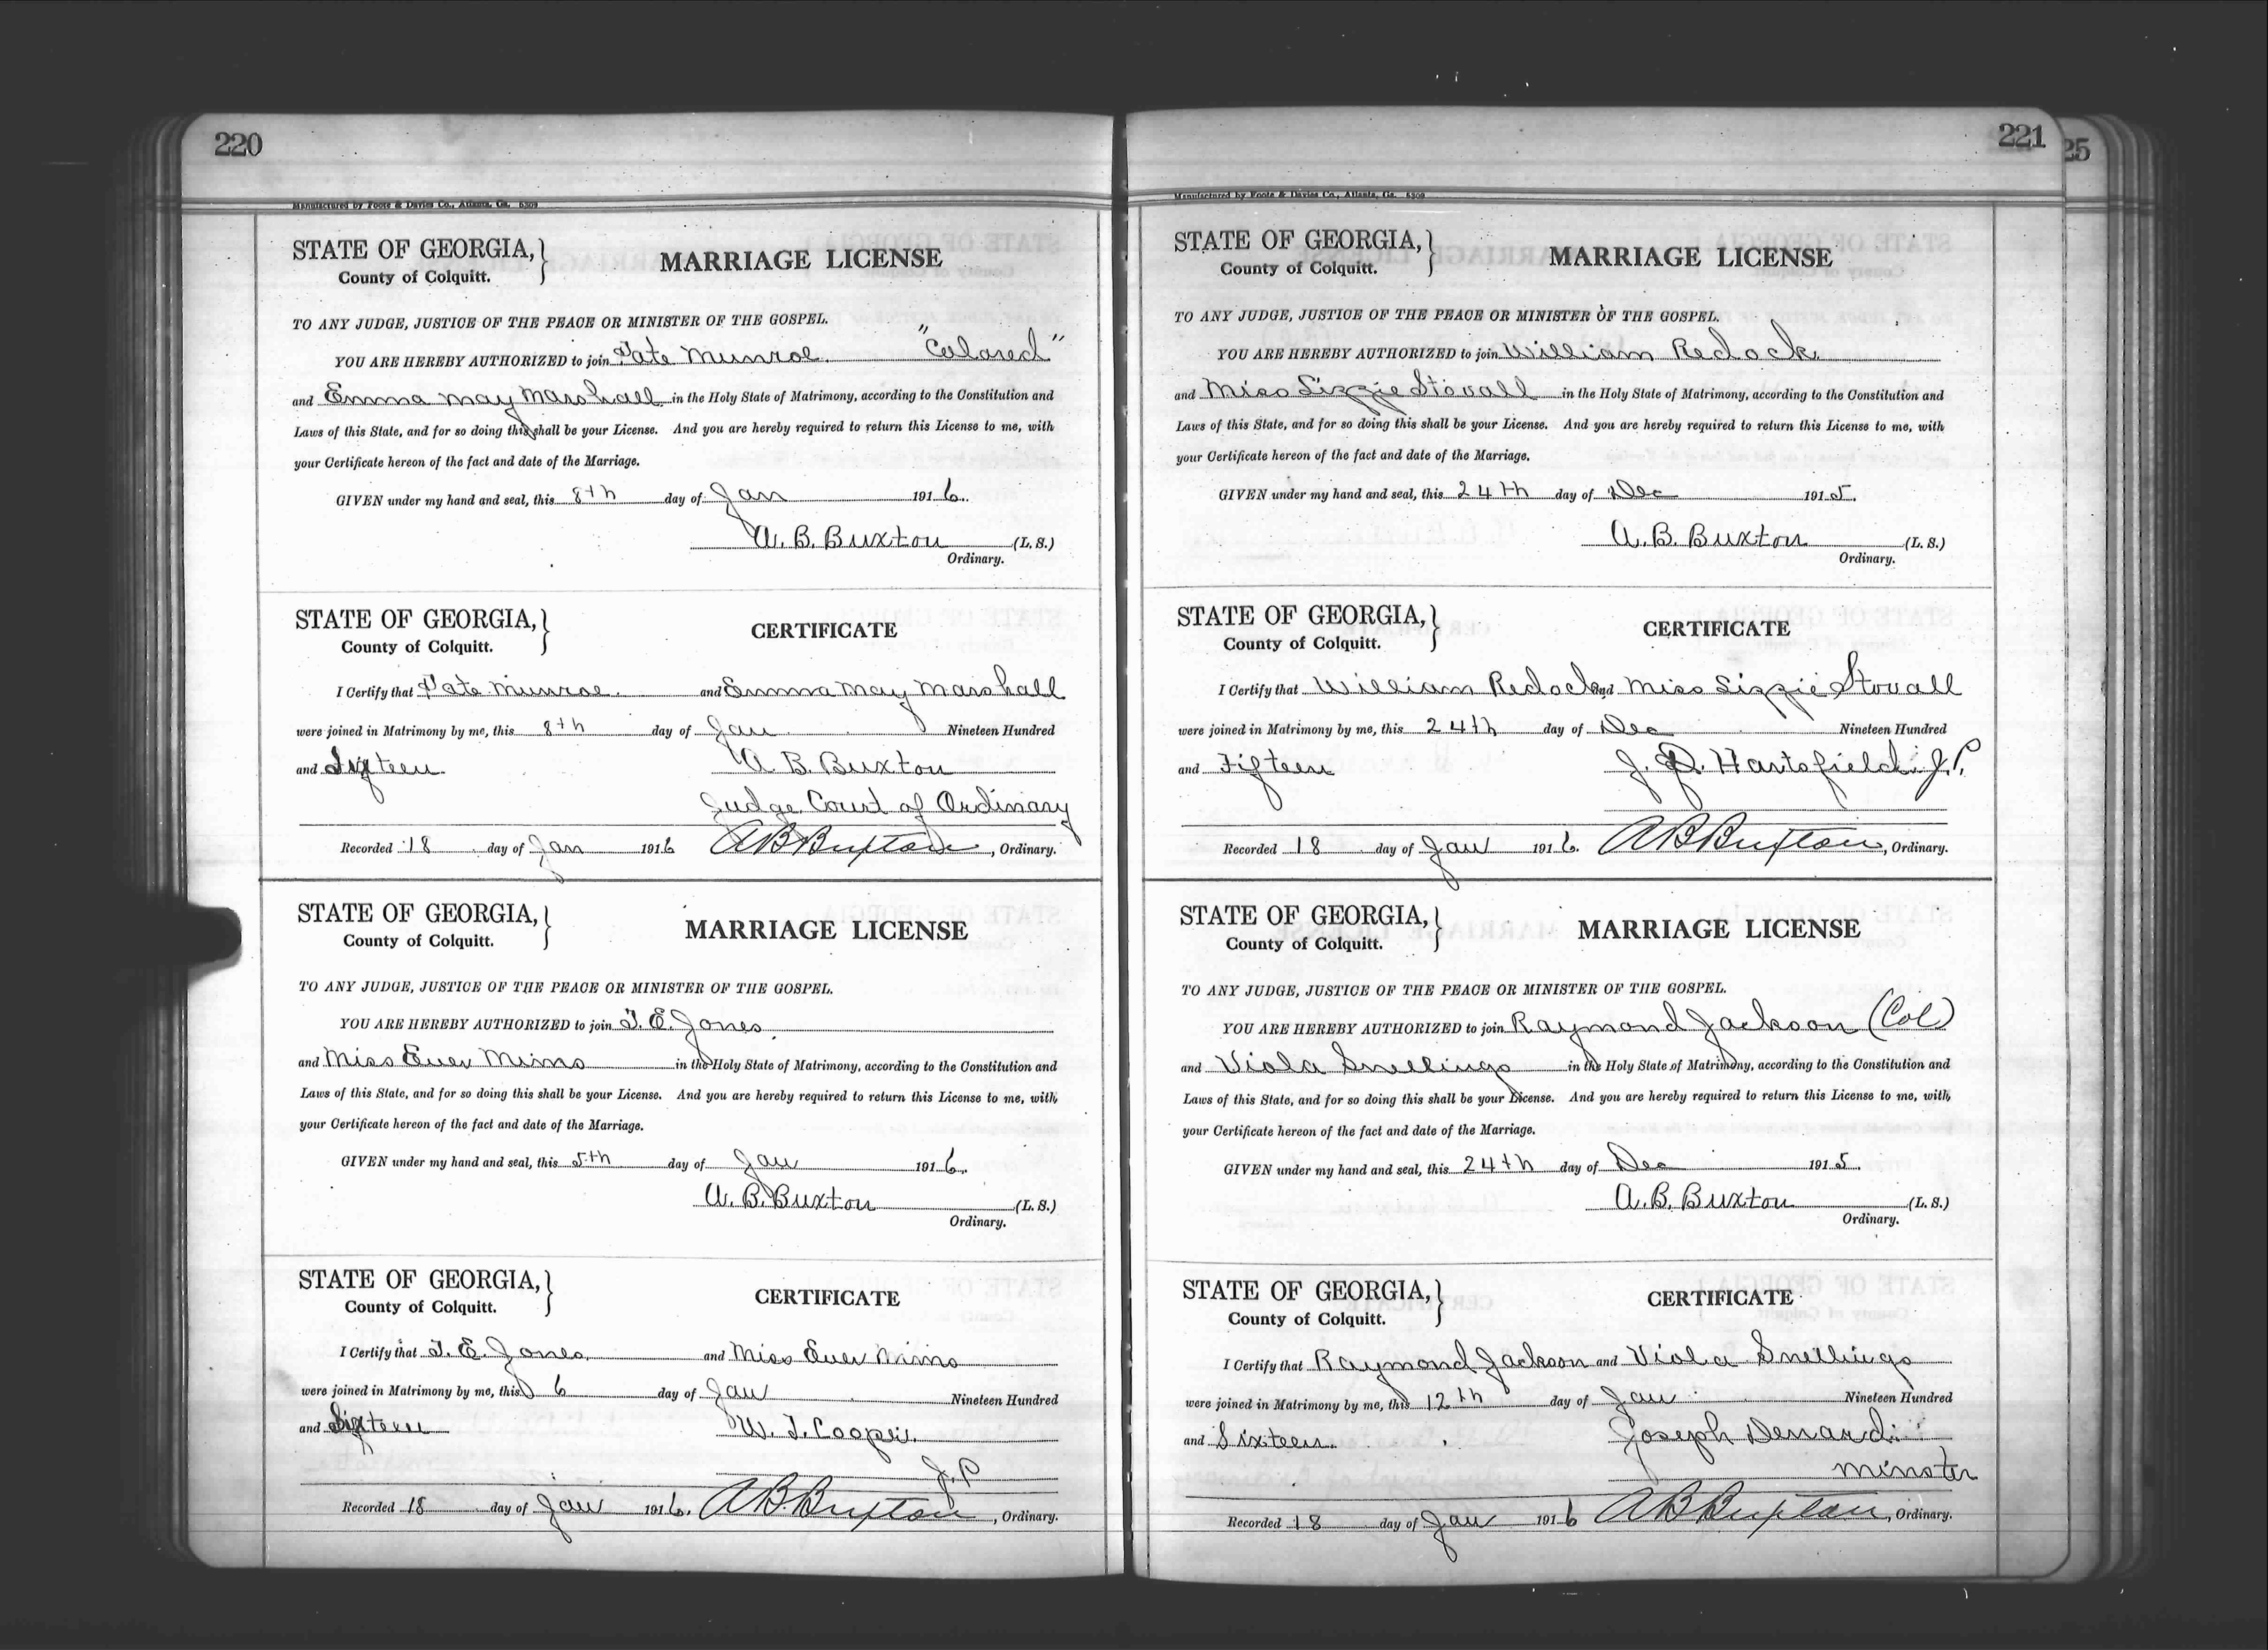 220
Manufactured by Foote & Davies Co., Atlanta, Ga. 5309
STATE OF GEORGIA,
County of Colquitt.
MARRIAGE LICENSE
TO ANY JUDGE, JUSTICE OF THE PEACE OR MINISTER OF THE GOSPEL.
YOU ARE HEREBY AUTHORIZED to join Pate Munroe. "Colored"
and Emma May Marshall in the Holy State of Matrimony, according to the Constitution and
Laws of this State, and for so doing this shall be your License. And you are hereby required to return this License to me, with
your Certificate hereon of the fact and date of the Marriage.
GIVEN under my hand and seal, this 8th day of Jan 1916.
A. B. Buxton (L. S.)
Ordinary.
STATE OF GEORGIA,
County of Colquitt.
CERTIFICATE
I Certify that Pate Munroe. and Emma May Marshall
were joined in Matrimony by me, this 8th day of Jan Nineteen Hundred
and Sixteen A. B. Buxton
Judge Court of Ordinary
Recorded 18 day of Jan 1916 A B Buxton, Ordinary.
STATE OF GEORGIA,
County of Colquitt.
MARRIAGE LICENSE
TO ANY JUDGE, JUSTICE OF THE PEACE OR MINISTER OF THE GOSPEL.
YOU ARE HEREBY AUTHORIZED to join J. E. Jones
and Miss Ever Mims in the Holy State of Matrimony, according to the Constitution and
Laws of this State, and for so doing this shall be your License. And you are hereby required to return this License to me, with,
your Certificate hereon of the fact and date of the Marriage.
GIVEN under my hand and seal, this 5th day of Jan 1916.
A. B. Buxton (L. S.)
Ordinary.
STATE OF GEORGIA,
County of Colquitt.
CERTIFICATE
I Certify that J. E. Jones. and Miss Ever Mims
were joined in Matrimony by me, this 6 day of Jan Nineteen Hundred
and Sixteen W. J. Cooper.
J. P
Recorded 18 day of Jan 1916. A B. Buxton, Ordinary.
221
25
Manufactured by Foote & Davies Co., Atlanta, Ga. 5309
STATE OF GEORGIA,
County of Colquitt.
MARRIAGE LICENSE
TO ANY JUDGE, JUSTICE OF THE PEACE OR MINISTER OF THE GOSPEL.
YOU ARE HEREBY AUTHORIZED to join William Redock
and Miss Lizzie Stovall in the Holy State of Matrimony, according to the Constitution and
Laws of this State, and for so doing this shall be your License. And you are hereby required to return this License to me, with
your Certificate hereon of the fact and date of the Marriage.
GIVEN under my hand and seal, this 24th day of Dec 1915.
A. B. Buxton (L. S.)
Ordinary.
STATE OF GEORGIA,
County of Colquitt.
CERTIFICATE
I Certify that William Redock and Miss Lizzie Stovall
were joined in Matrimony by me, this 24th day of Dec Nineteen Hundred
and Fifteen J. D. Hartsfield. J. P.
Recorded 18 day of Jan 1916. A B Buxton, Ordinary.
STATE OF GEORGIA,
County of Colquitt.
MARRIAGE LICENSE
TO ANY JUDGE, JUSTICE OF THE PEACE OR MINISTER OF THE GOSPEL.
YOU ARE HEREBY AUTHORIZED to join Raymond Jackson (Col)
and Viola Snellings in the Holy State of Matrimony, according to the Constitution and
Laws of this State, and for so doing this shall be your License. And you are hereby required to return this License to me, with,
your Certificate hereon of the fact and date of the Marriage.
GIVEN under my hand and seal, this 24th day of Dec 1915.
A. B. Buxton (L. S.)
Ordinary.
STATE OF GEORGIA,
County of Colquitt.
CERTIFICATE
I Certify that Raymond Jackson and Viola Snellings
were joined in Matrimony by me, this 12th day of Jan Nineteen Hundred
and Sixteen. Joseph Denard
minster
Recorded 18 day of Jan 1916 A B Buxton, Ordinary.